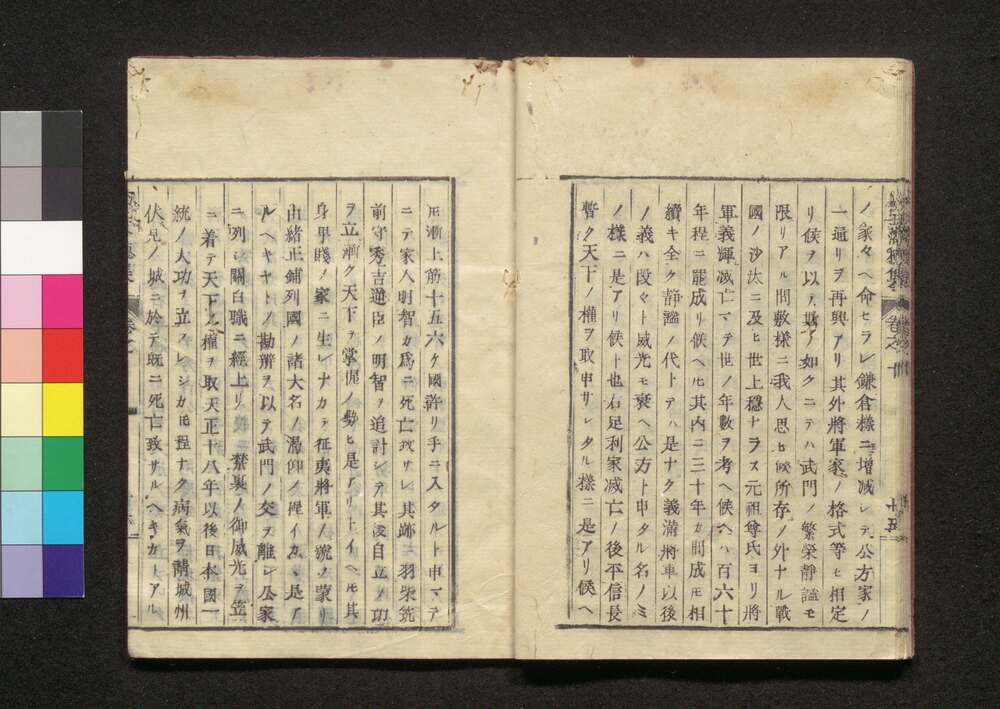 ノ家々ヘ命セラレ鎌倉樣ニ增減シテ公方家ノ
一通リヲ再興アリ其外將軍家ノ格式等ヒ相定
リ候ヲ以テ如クニテハ武門ノ繁榮靜謐モ
限リアル間敷樣ニ我人思ヒ候所存ノ外ナル戰
國ノ沙汰ニ及ヒ世上穩ナラス元祖尊氏ヨリ將
軍義輝滅亡マテ世ノ年數ヲ考ヘ候ヘハ百六十
年程ニ罷成リ候ヘ𪜈其内ニ三十年カ間成𪜈相
續キ全ク靜謐ノ代トテハ是ナク義滿將軍以後
ノ義ハ段々ト威光モ衰ヘ公方ト申タル名ノミ
ノ樣ニ是アリ候ト也右足利家滅亡ノ後平信長
暫ク天下ノ權ヲ取申サレタル樣ニ是アリ候ヘ
十五
𪜈漸上筋十五六ケ國許リ手ニ入タルト申マテ
ニテ家人明智カ爲ニ死亡致サレ其跡ニ羽柴筑
前守秀吉逆臣ノ明智ヲ追討シテ其後自立ノ功
ヲ立漸ク天下ヲ掌握ノ勢ヒ是アリトイヘ𪜈其
身卑賤ノ家ニ生レナカラ征夷將軍ノ號ヲ蒙リ
由緒正鋪列國ノ諸大名ノ渴仰ノ程イカヽ是ア
ルヘキヤトノ勘辨ヲ以テ武門ノ交ヲ離レ公家
ニ列シ關白職ニ經上リ禁裏ノ御威光ヲ笠
ニ着テ天下ノ權ヲ取天正十八年以後日本國一
統ノ大功ヲ立ラレシカ𪜈程ナク病氣ヲ請城州
伏見ノ城ニ於テ既ニ死亡致サルヘキカトアル